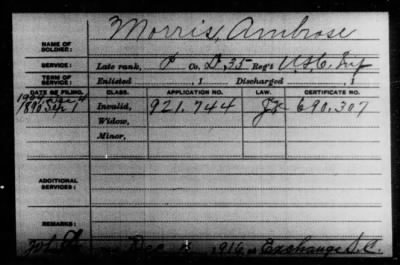 Morris, Ambrose
NAME OF SOLDIER:
SERVICE: Late rank, P Co. D, 35 Reg't U.S.C. Inf
TERM OF SERVICE: Enlisted , 1 Discharged , 1
DATE OF FILING. CLASS. APPLICATION NO. LAW. CERTIFICATE NO.
1890 Sep 1 Invalid, 921.744 690.307
Widow,
Minor,
ADDITIONAL SERVICES:
REMARKS:
Dec 1916 at Exchange S.C.